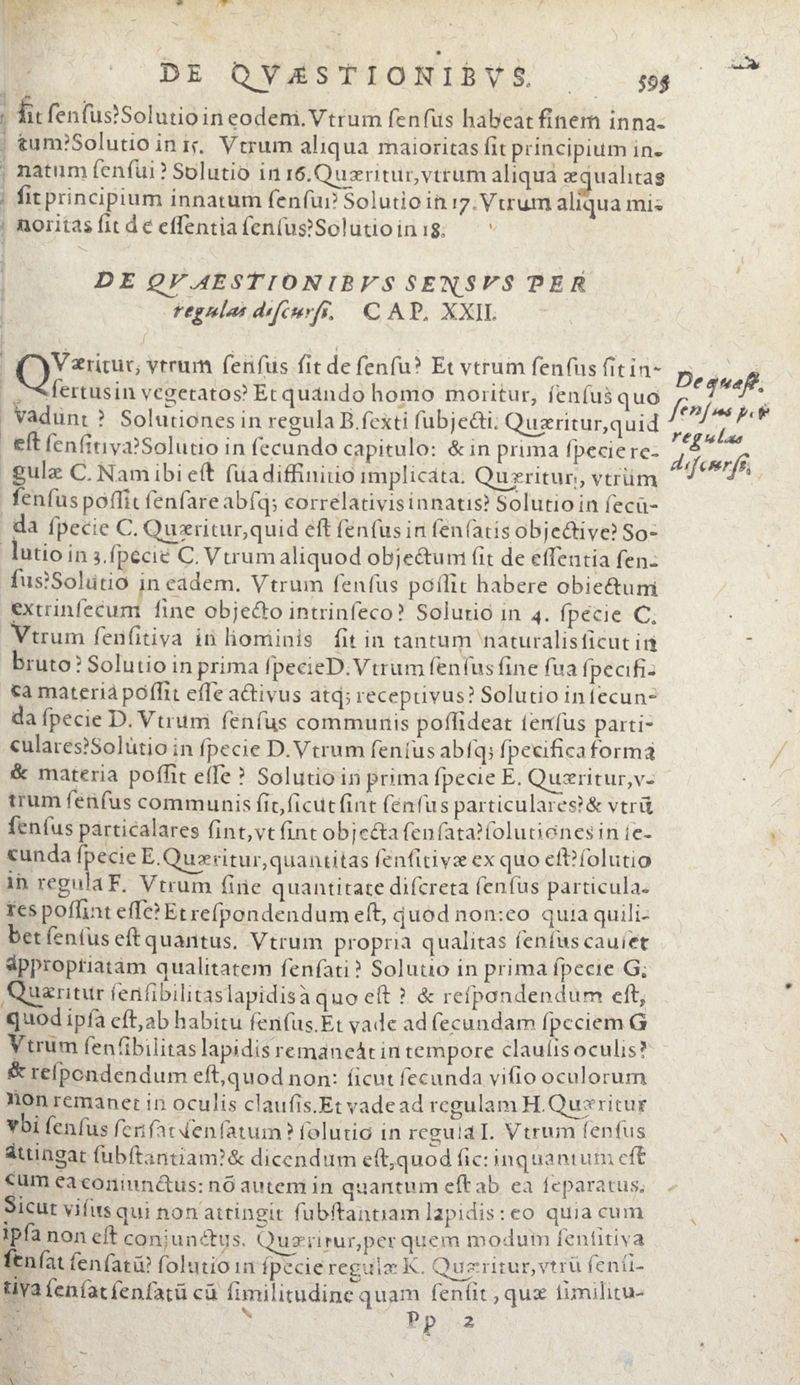 DE QVÆSTIONIBVS. 595
ſit ſenſus? Solutio in eodem. Vtrum ſenſus habeat finem inna-
tum? Solutio in 15. Vtrum aliqua maioritas ſit principium in-
natum ſenſui? Solutio in 16. Quæritur, vtrum aliqua æqualitas
ſit principium innatum ſenſui? Solutio in 17. Vtrum aliqua mi-
noritas ſit de eſſentia ſenſus? Solutio in 18.
DE QVÆSTIONIBVS SENSVS PER
regulas diſcurſi. CAP. XXII.
QVæritur, vtrum ſenſus ſit de ſenſu? Et vtrum ſenſus ſit in-
ſertus in vegetatos? Et quando homo moritur, ſenſus quo
vadunt? Solutiones in regula B. ſexti ſubjecti. Quæritur, quid
eſt ſenſitiva? Solutio in ſecundo capitulo: & in prima ſpecie re-
gulæ C. Nam ibi eſt ſua diffinitio implicata. Quæritur, vtrùm
ſenſus poſſit ſenſare abſq; correlativis innatis? Solutio in ſecū-
da ſpecie C. Quæritur, quid eſt ſenſus in ſenſatis objective? So-
lutio in 3. ſpecie C. Vtrum aliquod objectum ſit de eſſentia ſen-
ſus? Solutio in eadem. Vtrum ſenſus poſſit habere obiectum
extrinſecum ſine objecto intrinſeco? Solutio in 4. ſpecie C.
Vtrum ſenſitiva in hominis ſit in tantum naturalis ſicut in
bruto? Solutio in prima ſpecie D. Vtrum ſenſus ſine ſua ſpecifi-
ca materia poſſit eſſe activus atq; receptivus? Solutio in ſecun-
da ſpecie D. Vtrum ſenſus communis poſſideat ſenſus parti-
culares? Solutio in ſpecie D. Vtrum ſenſus abſq; ſpecifica forma
& materia poſſit eſſe? Solutio in prima ſpecie E. Quæritur, v-
trum ſenſus communis ſit, ſicut ſint ſenſus particulares? & vtrū
ſenſus particalares ſint, vt ſint objecta ſenſata? ſolutiones in ſe-
cunda ſpecie E. Quæritur, quantitas ſenſitivæ ex quo eſt? ſolutio
in regula F. Vtrum ſine quantitate diſcreta ſenſus particula-
res poſſint eſſe? Et reſpondendum eſt, quod non: eo quia quili-
bet ſenſus eſt quantus. Vtrum propria qualitas ſenſus cauſet
appropriatam qualitatem ſenſati? Solutio in prima ſpecie G.
Quæritur ſenſibilitas lapidis à quo eſt? & reſpondendum eſt,
quod ipſa eſt, ab habitu ſenſus. Et vade ad ſecundam ſpeciem G
Vtrum ſenſibilitas lapidis remaneat in tempore clauſis oculis?
& reſpondendum eſt, quod non: ſicut ſecunda viſio oculorum
non remanet in oculis clauſis. Et vade ad regulam H. Quæritur
vbi ſenſus ſenſat ſenſatum? ſolutio in regula I. Vtrum ſenſus
attingat ſubſtantiam? & dicendum eſt, quod ſic: inquantum eſt
cum ea coniunctus: nō autem in quantum eſt ab ea ſeparatus.
Sicut viſus qui non attingit ſubſtantiam lapidis: eo quia cum
ipſa non eſt conjunctus. Quæritur, per quem modum ſenſitiva
ſenſat ſenſatū? ſolutio in ſpecie regulæ K. Quæritur, vtrū ſenſi-
tiva ſenſat ſenſatū cū ſimilitudine quam ſenſit, quæ ſimilitu-
Pp 2
De quæſt.
ſenſus p.
regulas
diſcurſi.